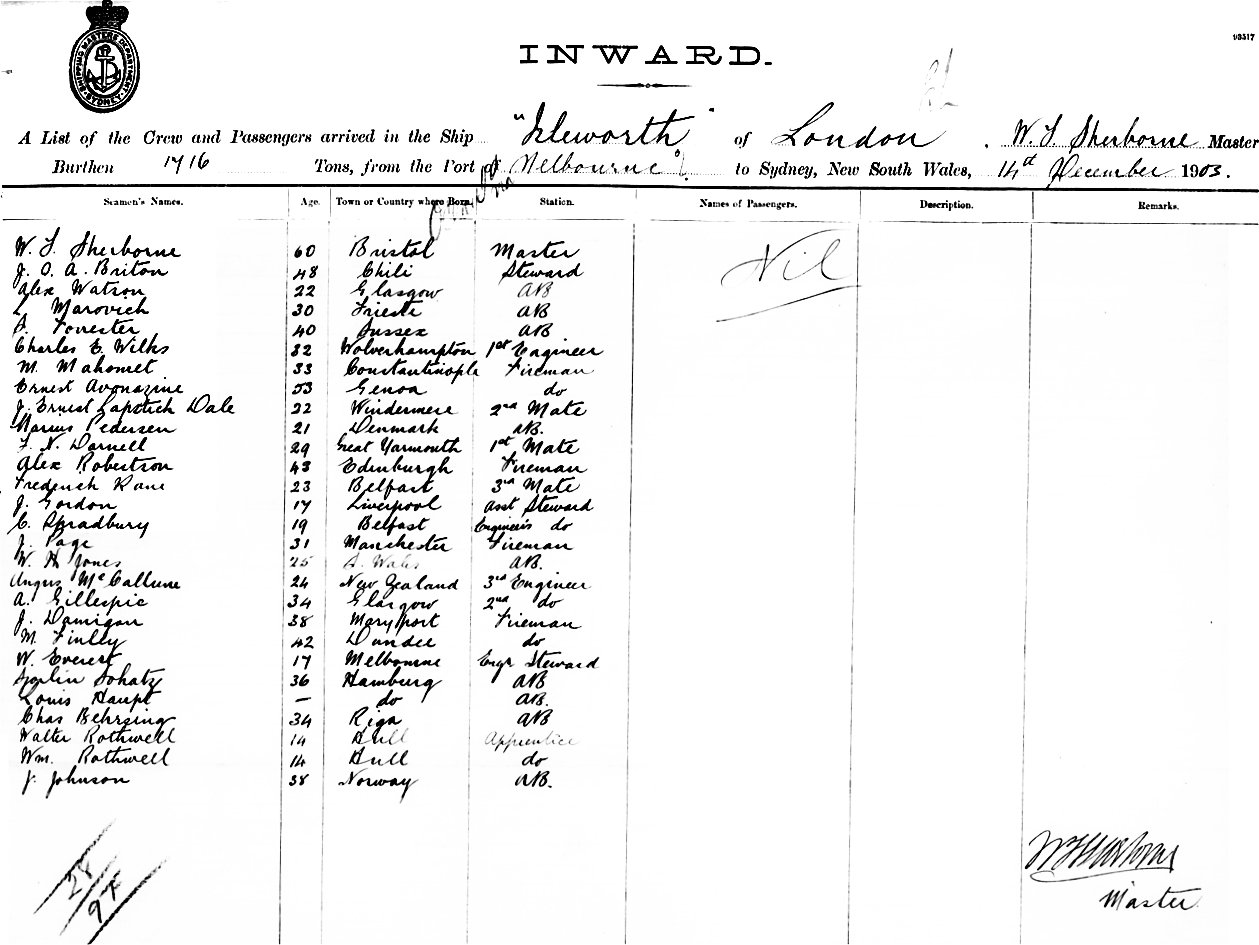 SHIPPING MASTERS DEPARTMENT
SYDNEY
93517
INWARD.
A List of the Crew and Passengers arrived in the Ship "Isleworth" of London . W. S. Sherborne Master
Burthen 1716 Tons, from the Port of Melbourne to Sydney, New South Wales, 14th December 1903.
Seamen's Names. Age. Town or Country where Born. Station. Names of Passengers. Description. Remarks.
W. S. Sherborne 60 Bristol Master Nil
J. O. A. Briton 48 Chili Steward
Alex Watson 22 Glasgow AB
Marovich 30 Trieste AB
Forrester 40 Sussex AB
Charles E. Wilks 32 Wolverhampton 1st Engineer
M. Mahomet 33 Constantinople Fireman
Ernest Avonazine 53 Genoa do
J. Ernest Lapstich Dale 22 Windermere 2nd Mate
Marius Pedersen 21 Denmark AB.
F. N. Darnell 29 Great Yarmouth 1st Mate
Alex Robertson 43 Edinburgh Fireman
Frederick Kane 23 Belfast 3rd Mate
J. Gordon 17 Liverpool Asst Steward
C. Spradbury 19 Belfast Engineers do
J. Page 31 Manchester Fireman
W. H Jones 25 S. Wales AB.
Angus McCallume 24 New Zealand 3rd Engineer
A. Gillespie 34 Glasgow 2nd do
J. Damigan 38 Maryport Fireman
M. Finley 42 Dundee do
W. Everest 17 Melbourne Engr Steward
Schatz 36 Hamburg AB
Louis Haupt — do AB.
Chas Behrsing 34 Riga AB
Walter Rothwell 14 Hull Apprentice
Wm. Rothwell 14 Hull do
J. Johnson 38 Norway AB.
28
97
Master